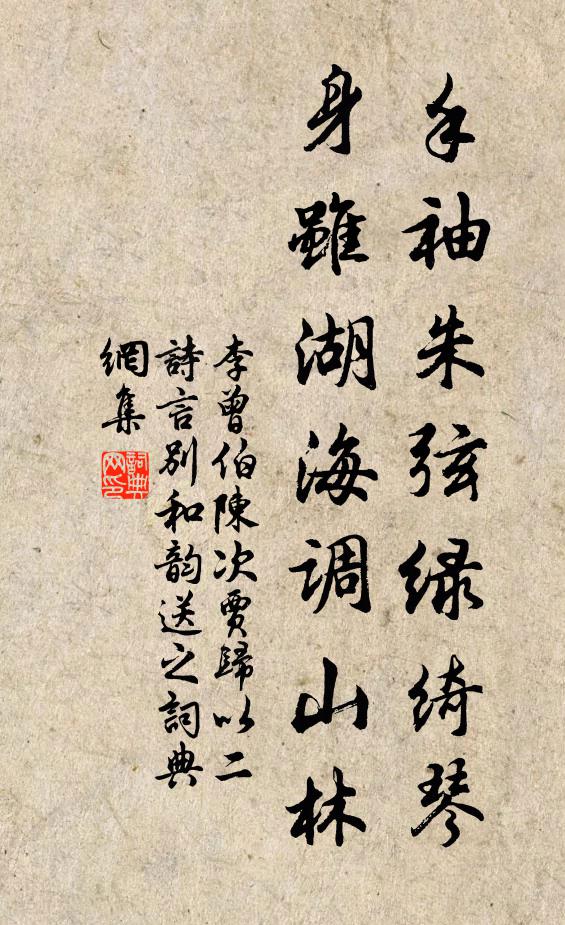 手袖朱弦绿绮琴
身雖湖海調山林
李曾伯陳次賈歸以二
詩言別和韵送之詞典
網集
詞典
网印